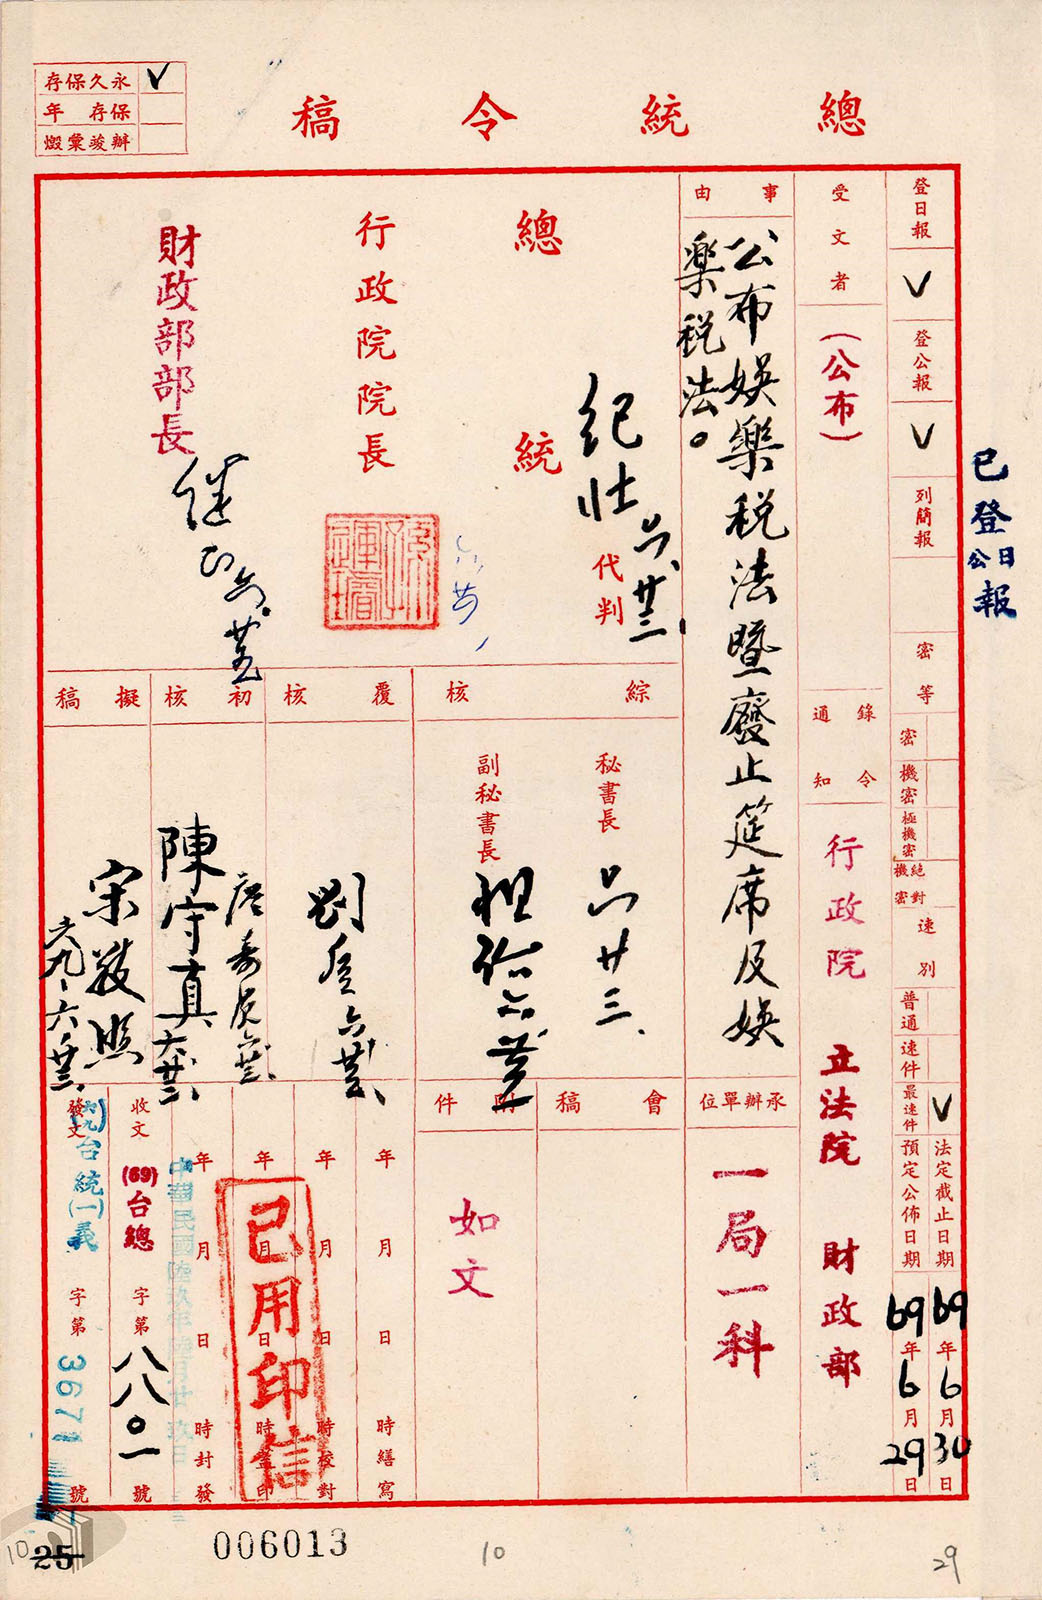 總統令稿
永久保存 V
保存 年
辦竣彙燬
登日報 V
登公報 V
列簡報
密等
密
機密
極機密
絕對機密
速別
普通
速件
最速件 V
法定截止日期 69年6月30日
預定公佈日期 69年6月29日
已登公日報
受文者
(公布)
錄令通知
行政院 立法院 財政部
事由
公布娛樂稅法暨廢止筵席及娛
樂稅法。
承辦單位
一局一科
總統
紀壯 六、廿三、
代判
行政院院長
孫運璿
財政部部長
綜核
秘書長
六廿三、
副秘書長
覆核
初核
陳守真
擬稿
宋
六九、六、廿三、
會稿
附件
如文
年 月 日 時繕寫
年 月 日 時校對
年 月 日 時蓋印
年 月 日 時封發
已用印信
中華民國陸玖年陸月廿玖日
收文 (69)台總 字第 八八〇一 號
發文 (六九)台統(一)義 字第 3671 號
006013
10
25
10
29